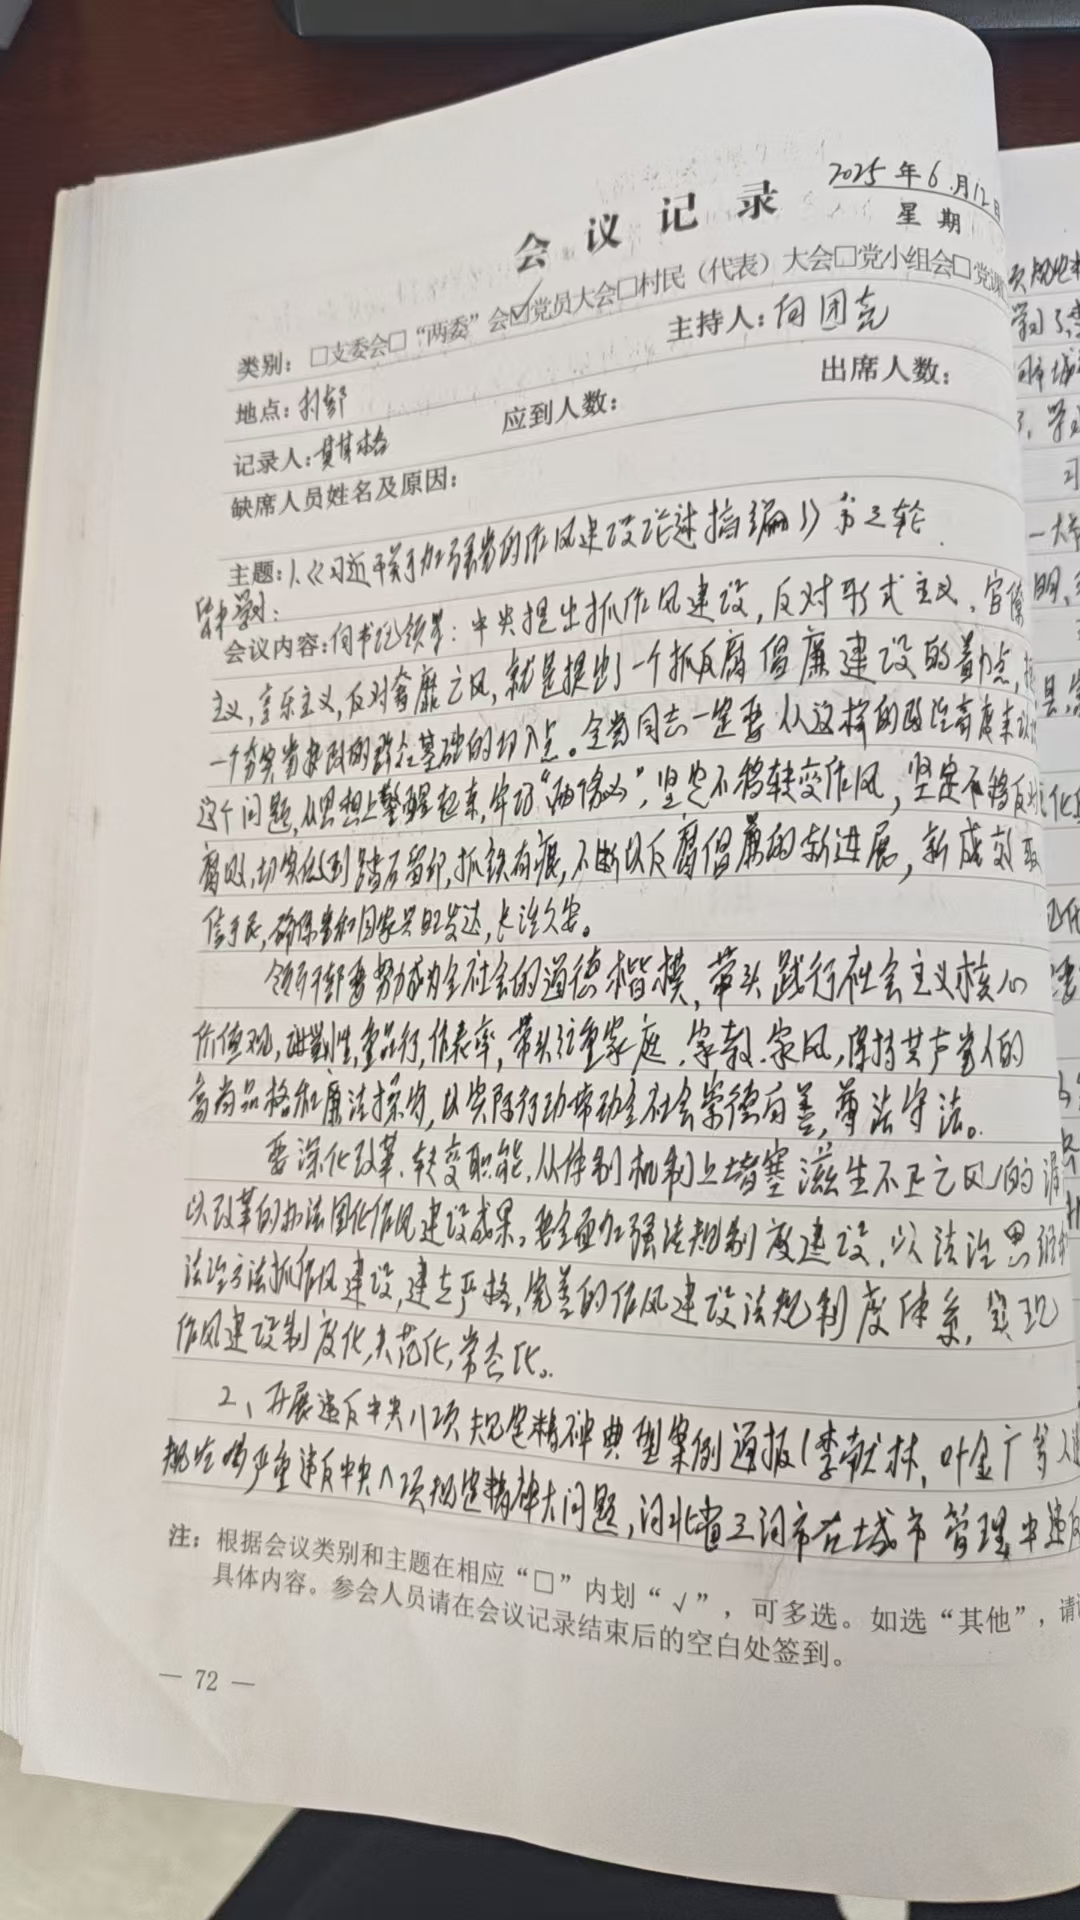 2025年6月12日
会议记录
星期
类别：□支委会□“两委”会☑党员大会□村民（代表）大会□党小组会□党课
地点：村部 主持人：何团亮
记录人：其其格 应到人数： 出席人数：
缺席人员姓名及原因：
主题：1.《习近平关于加强党的作风建设论述摘编》第三轮
集中学习：
会议内容：何书记领学：中央提出抓作风建设，反对形式主义、官僚
主义，享乐主义，反对奢靡之风，就是提出了一个抓反腐倡廉建设的着力点，
一个夯实党执政的群众基础的切入点。全党同志一定要从这样的政治高度来认识
这个问题，从思想上警醒起来，牢记“两个务必”，坚定不移转变作风，坚定不移反对
腐败，切实做到踏石留印，抓铁有痕，不断以反腐倡廉的新进展，新成效取
信于民，确保党和国家兴旺发达，长治久安。
领导干部要努力成为全社会的道德楷模，带头践行社会主义核心
价值观，讲党性，重品行，作表率，带头注重家庭、家教、家风，保持共产党人的
高尚品格和廉洁操守，以实际行动带动全社会崇德向善，尊法守法。
要深化改革、转变职能，从体制机制上堵塞滋生不正之风的漏
以改革的办法固化作风建设成果。要全面加强法规制度建设，以法治思维和
法治方法抓作风建设，建立严格，完善的作风建设法规制度体系，实现
作风建设制度化，规范化，常态化。
2、开展违反中央八项规定精神典型案例通报（李献林，叶金广等人违
规吃喝严重违反中央八项规定精神大问题，河北省三河市在城市管理中违反
注：根据会议类别和主题在相应“□”内划“√”，可多选。如选“其他”，请
具体内容。参会人员请在会议记录结束后的空白处签到。
— 72 —